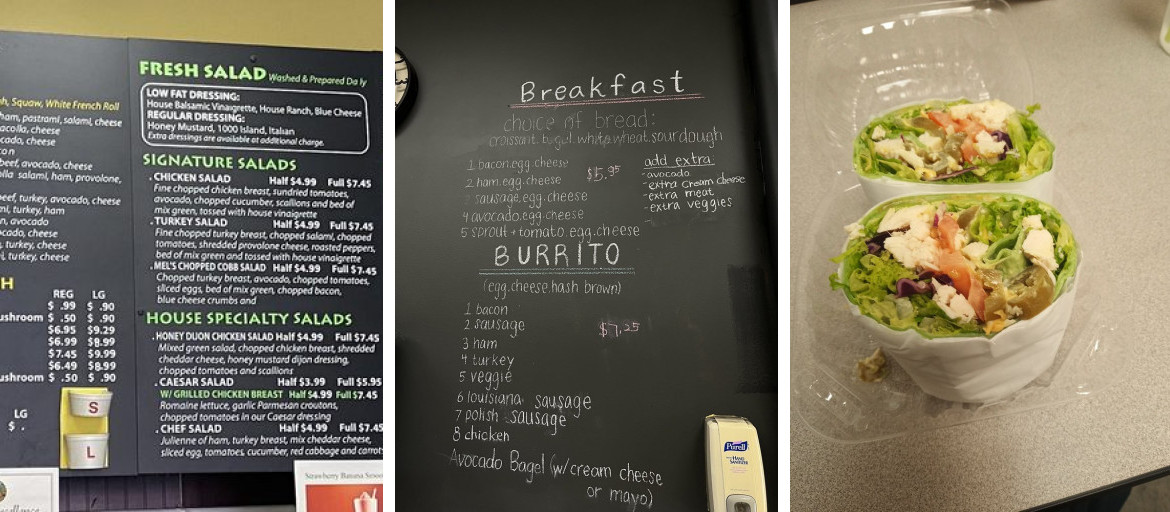 FRESH SALAD Washed & Prepared Daily
LOW FAT DRESSING:
House Balsamic Vinaigrette, House Ranch, Blue Cheese
REGULAR DRESSING:
Honey Mustard, 1000 Island, Italian
Extra dressings are available at additional charge.
SIGNATURE SALADS
. CHICKEN SALAD Half $4.99 Full $7.45
Fine chopped chicken breast, sundried tomatoes,
avocado, chopped cucumber, scallions and bed of
mix green, tossed with house vinaigrette
. TURKEY SALAD Half $4.99 Full $7.45
Fine chopped turkey breast, chopped salami, chopped
tomatoes, shredded provolone cheese, roasted peppers,
bed of mix green and tossed with house vinaigrette
. MEL'S CHOPPED COBB SALAD Half $4.99 Full $7.45
Chopped turkey breast, avocado, chopped tomatoes,
sliced eggs, bed of mix green, chopped bacon,
blue cheese crumbs and
HOUSE SPECIALTY SALADS
. HONEY DIJON CHICKEN SALAD Half $4.99 Full $7.45
Mixed green salad, chopped chicken breast, shredded
cheddar cheese, honey mustard dijon dressing,
chopped tomatoes and scallions
. CAESAR SALAD Half $3.99 Full $5.95
W/ GRILLED CHICKEN BREAST Half $4.99 Full $7.45
Romaine lettuce, garlic Parmesan croutons,
chopped tomatoes in our Caesar dressing
. CHEF SALAD Half $4.99 Full $7.45
Julienne of ham, turkey breast, mix cheddar cheese,
sliced egg, tomatoes, cucumber, red cabbage and carrots
Squaw, White French Roll
ham, pastrami, salami, cheese
cheese
cado, cheese
beef, avocado, cheese
salami, ham, provolone,
turkey, avocado, cheese
turkey, ham
avocado
cado, cheese
turkey, cheese
turkey, cheese
H
REG LG
$ .99 $ .90
ushroom $ .50 $ .90
$6.95 $9.29
$6.99 $8.99
$7.45 $9.99
$6.49 $8.99
ushroom $ .50 $ .90
LG
$ .
S
L
Strawberry Banana
Breakfast
choice of bread:
croissant. bagel. white. wheat. sourdough
1 bacon.egg.cheese
2 ham.egg.cheese
3 sausage.egg.cheese
4 avocado.egg.cheese
5 sprout + tomato.egg.cheese
$5.95
add extra
-avocado
-extra cream cheese
-extra meat
-extra veggies
BURRITO
(egg.cheese.hash brown)
1 bacon
2 sausage
3 ham
4 turkey
5 veggie
6 louisiana sausage
7 polish sausage
8 chicken
$7.25
Avocado Bagel (w/cream cheese
or mayo)
Purell
HAND
SANITIZER